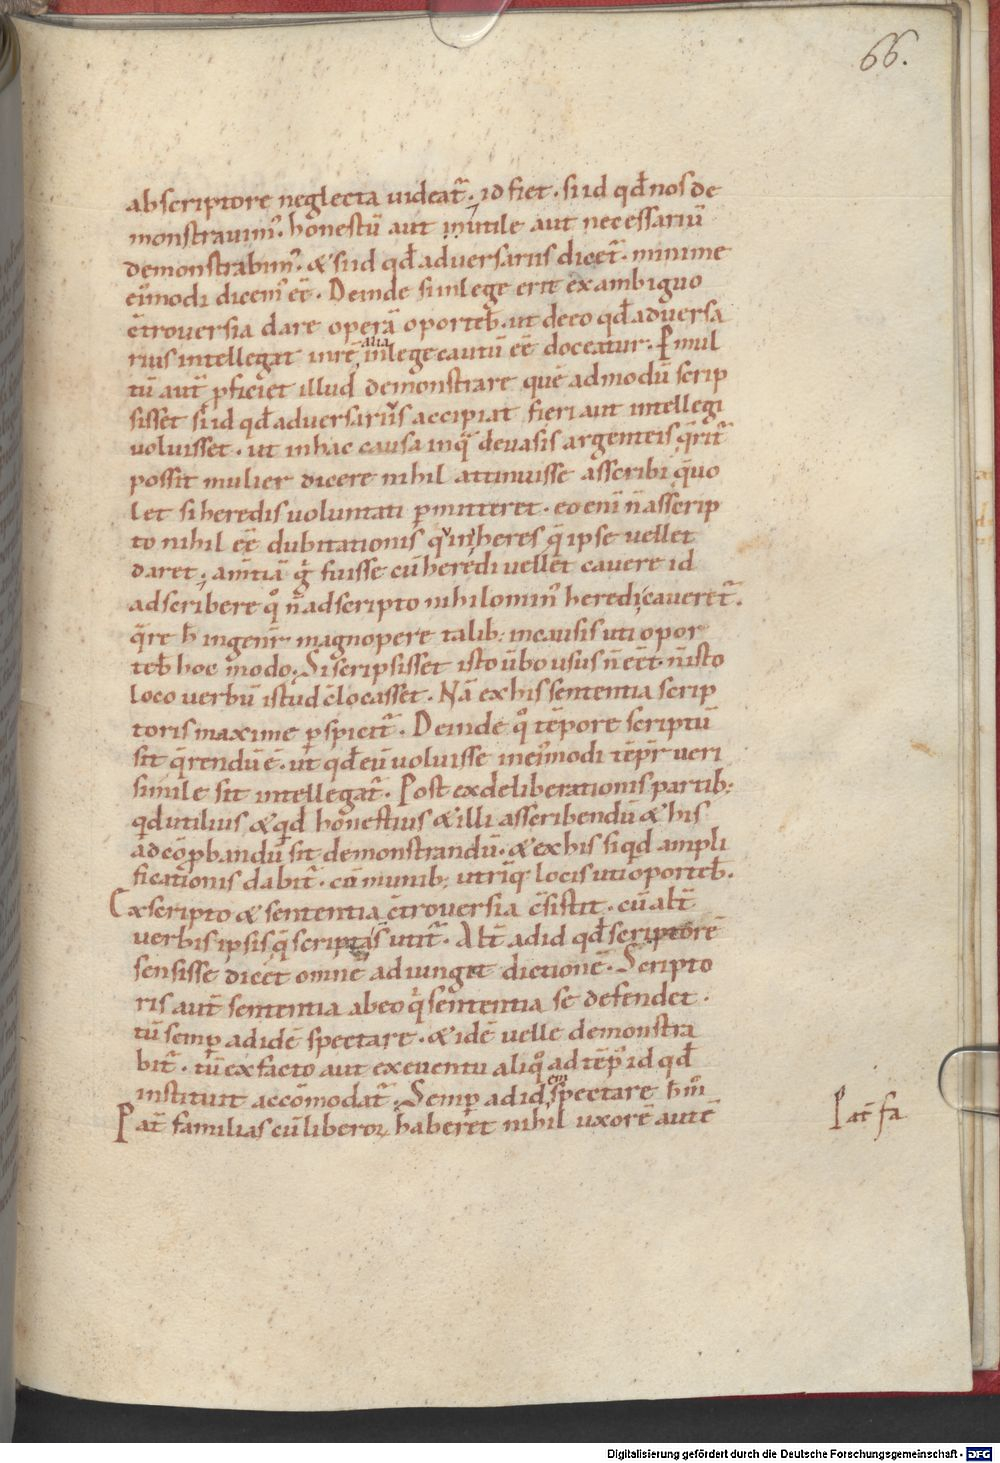 66.
ab scriptore neglecta uideat̄. id fiet. si id qđ nos de
monstrauim᾿. honestū aut inutile aut necessariū
demonstrabim᾿. & si id qđ aduersarius dicet̄. minime
ei᾿modi dicem᾿ eē. Deinde si in lege erit ex ambiguo
c̄trouersia dare operā oporteb̄. ut de eo qđ aduersa
rius intellegat in rē alia in lege cautū eē doceatur. P mul
tū aut̄ pficiet illud demonstrare quē admodū scrip
sisset si id qđ aduersarius accipiat fieri aut intellegi
uoluisset. ut in hac causa in q̄ de uasis argenteis q̄rit̄
possit mulier dicere nihil attinuisse asscribi q̄ uo
let si heredis uoluntati pmitteret. eo eni n̄ asscrip
to nihil eē dubitationis qn heres q̄ ipse uellet
daret; am̄tiā g̊ fuisse cū heredi uellet cauere id
adscribere q̊ n̄ adscripto nihilomin᾿ heredi caueret̄.
q̄re h̄ ingener magnopere talib; in causis uti opor
teb̄ hoc modo. Si scripsisset isto ūbo usus n̄ eēt. n̄ isto
loco uerbū istud c̄locasset. Nā ex his sententia scrip
toris maxime pspicit̄. Deinde q̊ tēpore scriptū
sit q̄rendū ē. ut qđ eū uoluisse in ei᾿modi tēpr ueri
simile sit intellegat̄. Post ex deliberationis partib;
qid utilius & qid honestius & illi asscribendū & his
ad cōpbandū sit demonstrandū. & ex his si qid ampli
ficationis dabit̄. cōmunib; utriq; locis uti oporteb̄.
Ex scripto & sententia c̄trouersia c̄sistit. cū alt̄
uerbis ipsis q̄ scripta s̄ utit̄. Alt̄ ad id qđ scriptorē
sensisse dicet omnē adiunget dictionē. Scripto
ris aut̄ sententia ab eo q sententia se defendet.
tū semp ad idē spectare. & idē uelle demonstra
bit̄. tū ex facto aut ex euentu aliq̊ ad tēp᾿ id qđ
instituit accōmodat̄. Semp ad idem spectare h̄ m̊
Pat̄ familias cū liberoꝝ haberet nihil uxorē autē
Pat̄ fa
Digitalisierung gefördert durch die Deutsche Forschungsgemeinschaft - DFG